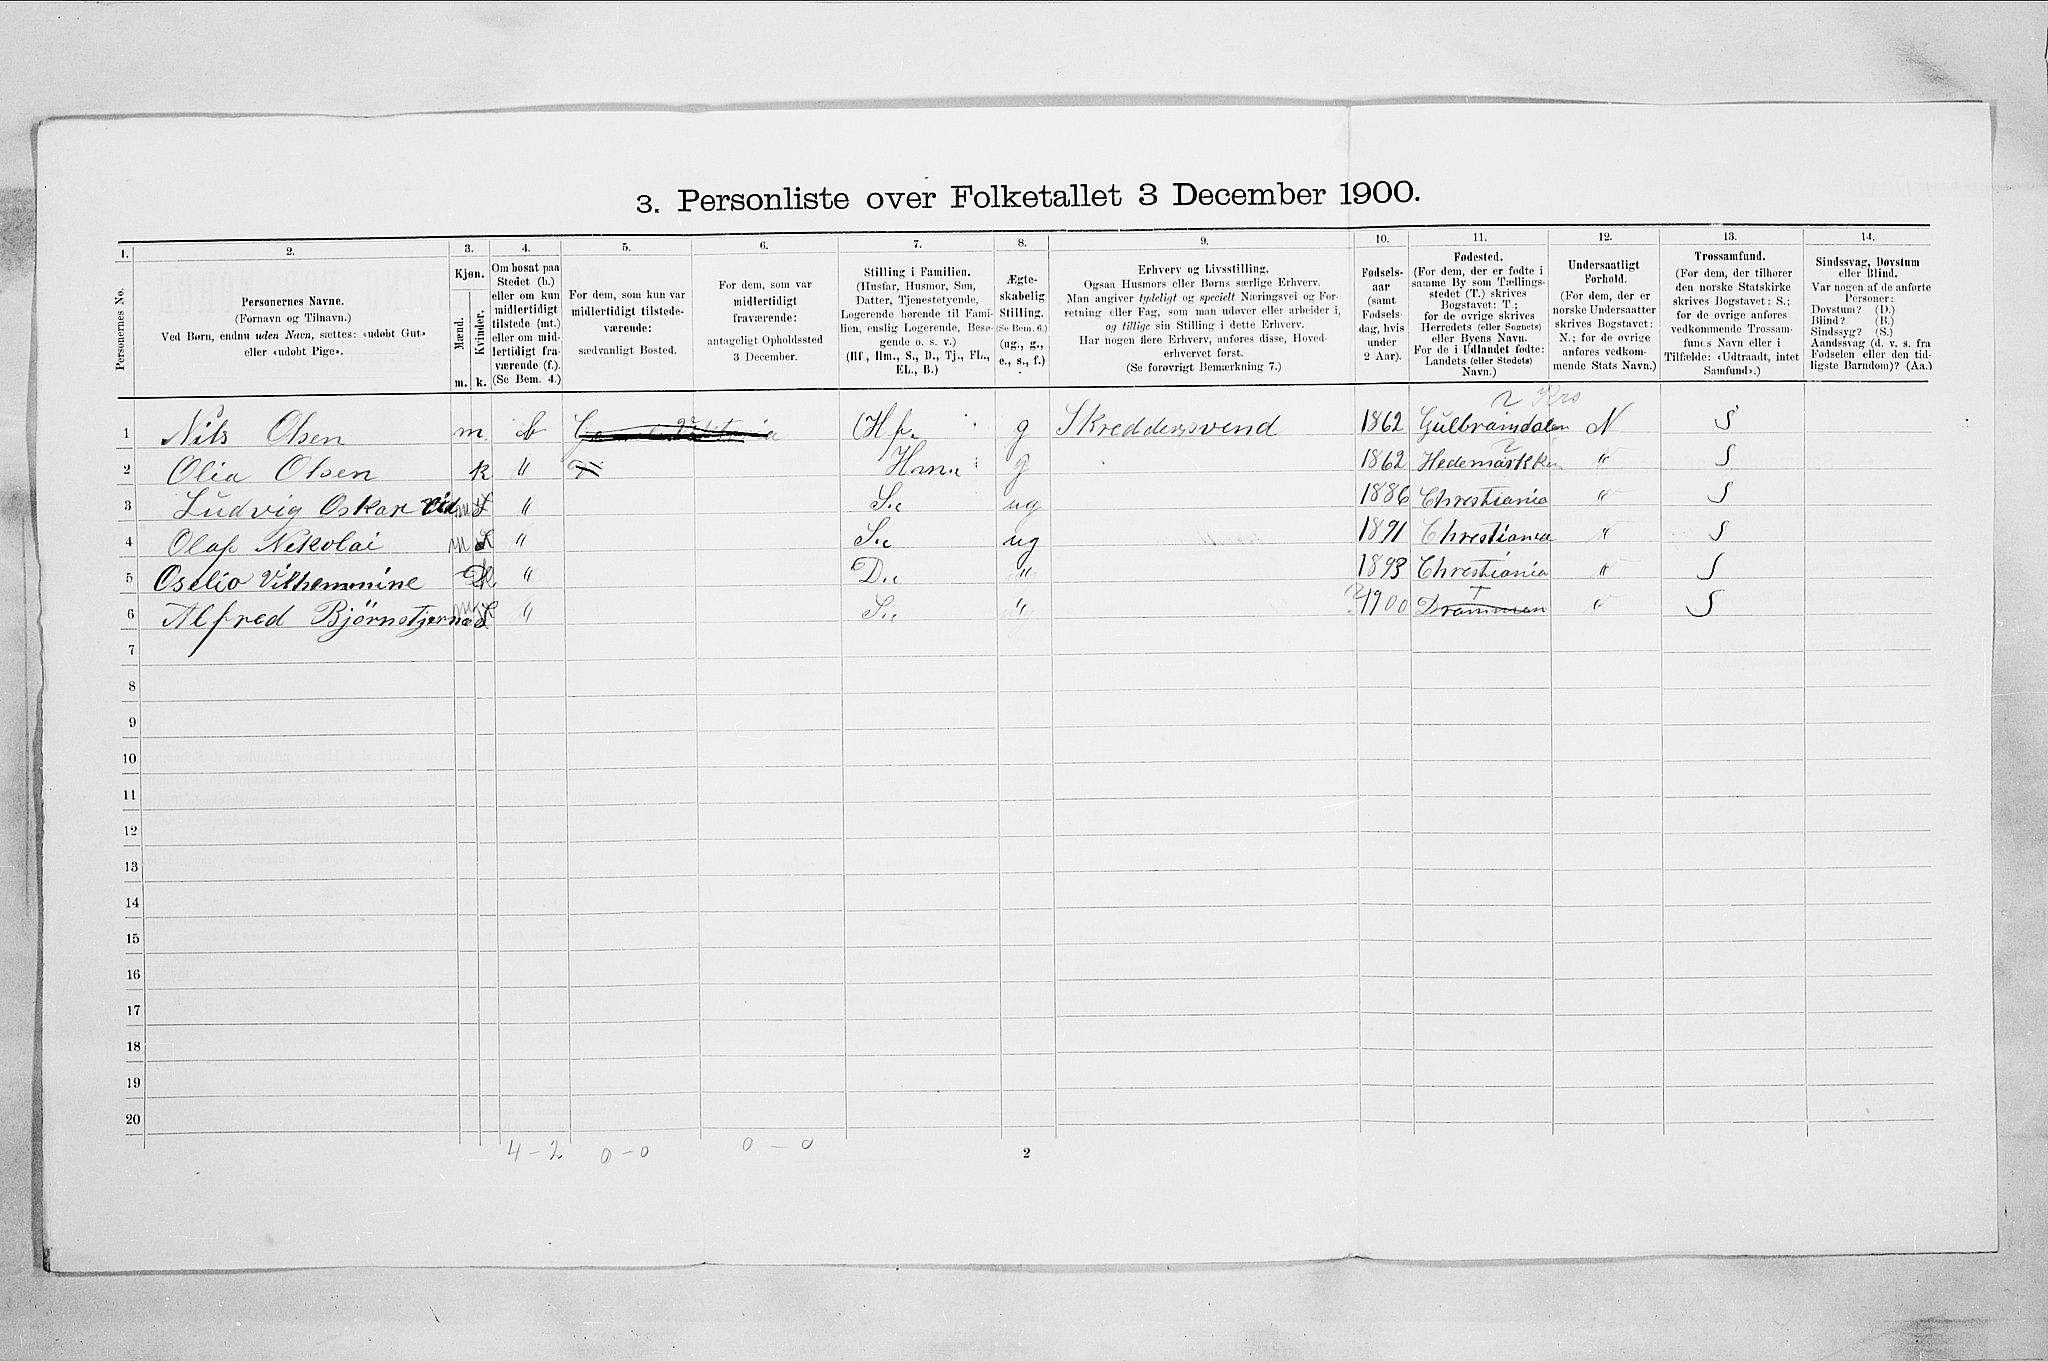 3. Personliste over Folketallet 3 December 1900.
1. 2. 3. 4. 5. 6. 7. 8. 9. 10. 11. 12. 13. 14.
Personernes No.
Personernes Navne.
(Fornavn og Tilnavn.)
Ved Børn, endnu uden Navn, sættes: «udøbt Gut»
eller «udøbt Pige».
Kjøn.
Mænd.
Kvinder.
m. k.
Om bosat paa
Stedet (b.)
eller om kun
midlertidigt
tilstede (mt.)
eller om mid-
lertidigt fra-
værende (f.).
(Se Bem. 4.)
For dem, som kun var
midlertidigt tilstede-
værende:
sædvanligt Bosted.
For dem, som var
midlertidigt
fraværende:
antageligt Opholdssted
3 December.
Stilling i Familien.
(Husfar, Husmor, Søn,
Datter, Tjenestetyende,
Logerende hørende til Fami-
lien, enslig Logerende, Besø-
gende o. s. v.)
(Hf., Hm., S., D., Tj., FL.,
EL., B.)
Ægte-
skabelig
Stilling.
(Se Bem. 6.)
(ug., g.,
e., s., f.)
Erhverv og Livsstilling.
Ogsaa Husmors eller Børns særlige Erhverv.
Man angiver tydeligt og specielt Næringsvei og For-
retning eller Fag, som man udøver eller arbeider i,
og tillige sin Stilling i dette Erhverv.
Har nogen flere Erhverv, anføres disse, Hoved-
erhvervet først.
(Se forøvrigt Bemærkning 7.)
Fødsels-
aar
(samt
Fødsels-
dag, hvis
under
2 Aar).
Fødested.
(For dem, der er fødte i
samme By som Tællings-
stedet (T.) skrives
Bogstavet: T.;
for de øvrige skrives
Herredets (eller Sognets)
eller Byens Navn.
For de i Udlandet fødte:
Landets (eller Stedets)
Navn.)
Undersaatligt
Forhold.
(For dem, der er
norske Undersaatter
skrives Bogstavet:
N.; for de øvrige
anføres vedkom-
mende Stats Navn.)
Trossamfund.
(For dem, der tilhører
den norske Statskirke
skrives Bogstavet: S.;
for de øvrige anføres
vedkommende Trossam-
funds Navn eller i
Tilfælde: «Udtraadt, intet
Samfund».)
Sindssvag, Døvstum
eller Blind.
Var nogen af de anførte
Personer:
Døvstum? (D.)
Blind? (B.)
Sindssyg? (S.)
Aandssvag (d. v. s. fra
Fødselen eller den tid-
ligste Barndom)? (Aa.)
1 Nils Olsen m b Hf. g Skreddersvend 1862 Gulbramdalen N S
2 Olia Olsen k " Hm. g 1862 Hedemarkken " S
3 Ludvig Oskar m " S. ug 1886 Chrestiania " S
4 Olaf Nikolai m " S. ug 1891 Chrestiania " S
5 Oselio Vilhemmine k " D. " 1893 Chrestiania " S
6 Alfred Bjørnstjerne m " S. " 1900 Drammen T " S
7
8
9
10
11
12
13
14
15
16
17
18
19
20
4 - 2 0 - 0 0 - 0
2